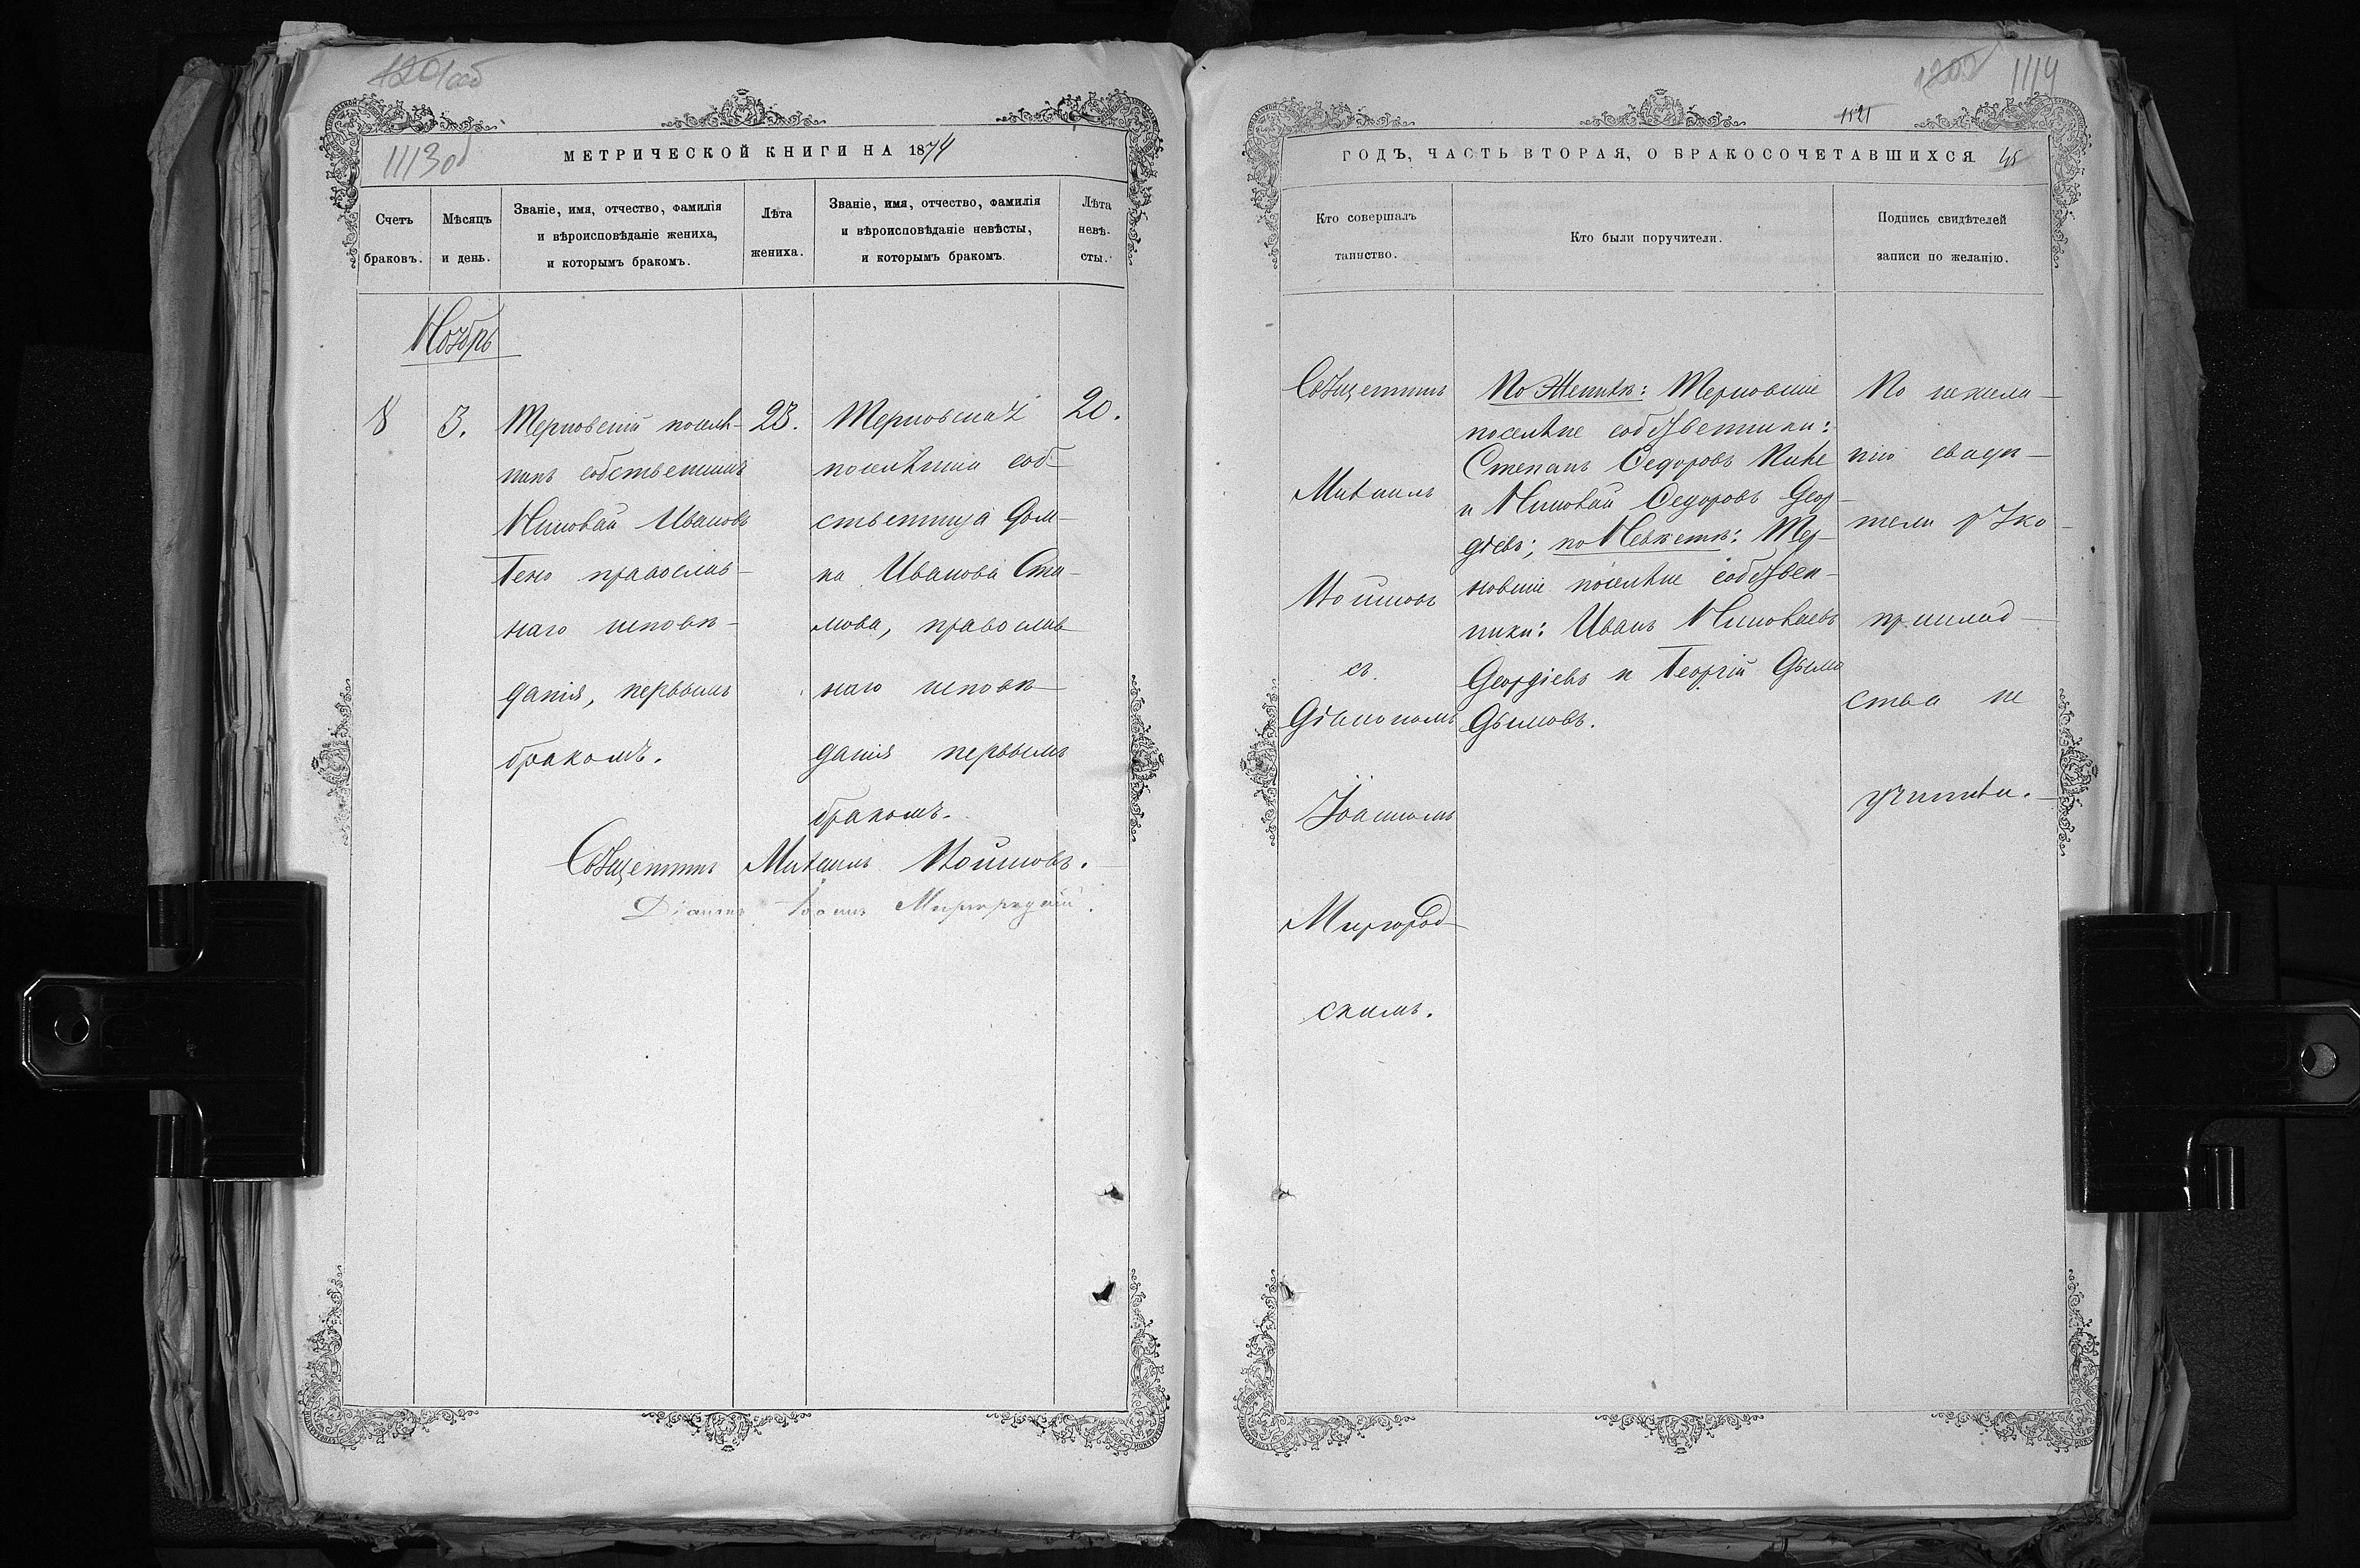 1201об
1113об
МЕТРИЧЕСКОЙ КНИГИ НА 1874
Счетъ
браковъ.
Мѣсяцъ
и день.
Званіе, имя, отчество, фамилія
и вѣроисповѣданіе жениха,
и которымъ бракомъ.
Лѣта
жениха.
Званіе, имя, отчество, фамилія
и вѣроисповѣданіе невѣсты,
и которымъ бракомъ.
Лѣта
невѣ-
сты.
Ноябрь
8
3.
Терновскій поселя-
нинъ собственникъ
Николай Ивановъ
Гено православ-
наго исповѣ-
данія, первымъ
бракомъ.
23.
Терновская
поселянка соб-
ственница Дом-
на Иванова Ста-
мова, православ-
наго исповѣ-
данія первымъ
бракомъ.
20.
Священникъ Михаилъ Войновъ.
Діаконъ Іоаннъ Миргородскій.
1202 1114
1121
ГОДЪ, ЧАСТЬ ВТОРАЯ, О БРАКОСОЧЕТАВШИХСЯ 45
Кто совершалъ
таинство.
Кто были поручители.
Подпись свидѣтелей
записи по желанію.
Священникъ
Михаилъ
Войновъ
съ
Діакономъ
Іоанномъ
Миргород-
скимъ.
По Женихѣ: Терновскіе
поселяне собственники:
Степанъ Ѳедоровъ
и Николай Ѳедоровъ Геор-
діевъ; по Невѣстѣ: Тер-
новскіе поселяне собствен-
ники: Иванъ Николаевъ
Георгіевъ и Георгій Дымо
Дымовъ.
По нежела-
нію свидѣ-
тели руко-
приклад-
ства не
учинили.